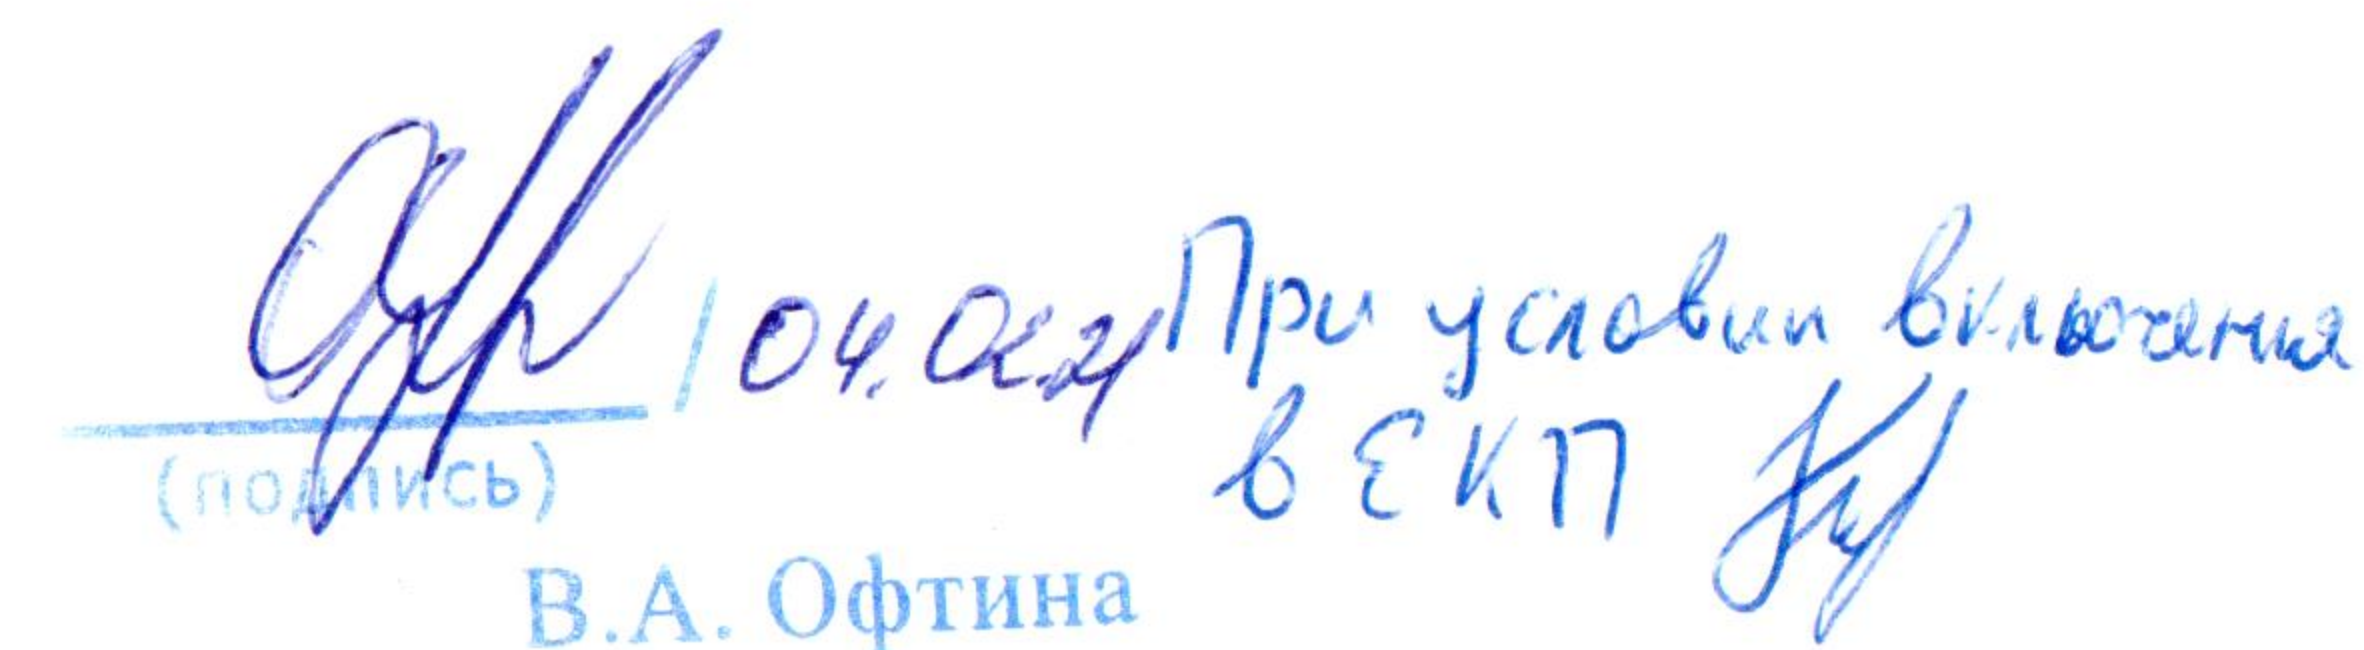 / 04.02.21 При условии включения
в ЕКП
(подпись)
В.А. Офтина